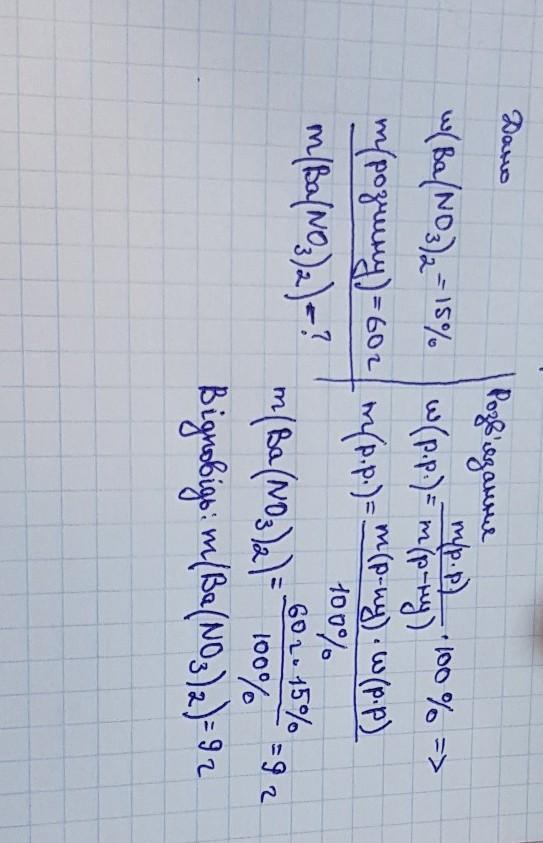 Дано
w(Ba(NO3)2 = 15%
m(розчину) = 60г
m(Ba(NO3)2) = ?
Розв'язання
w(р.р.) = m(р.р) / m(р-ну) · 100% =>
m(р.р.) = m(р-ну) · w(р.р) / 100%
m(Ba(NO3)2) = 60г · 15% / 100% = 9г
Відповідь: m(Ba(NO3)2) = 9г